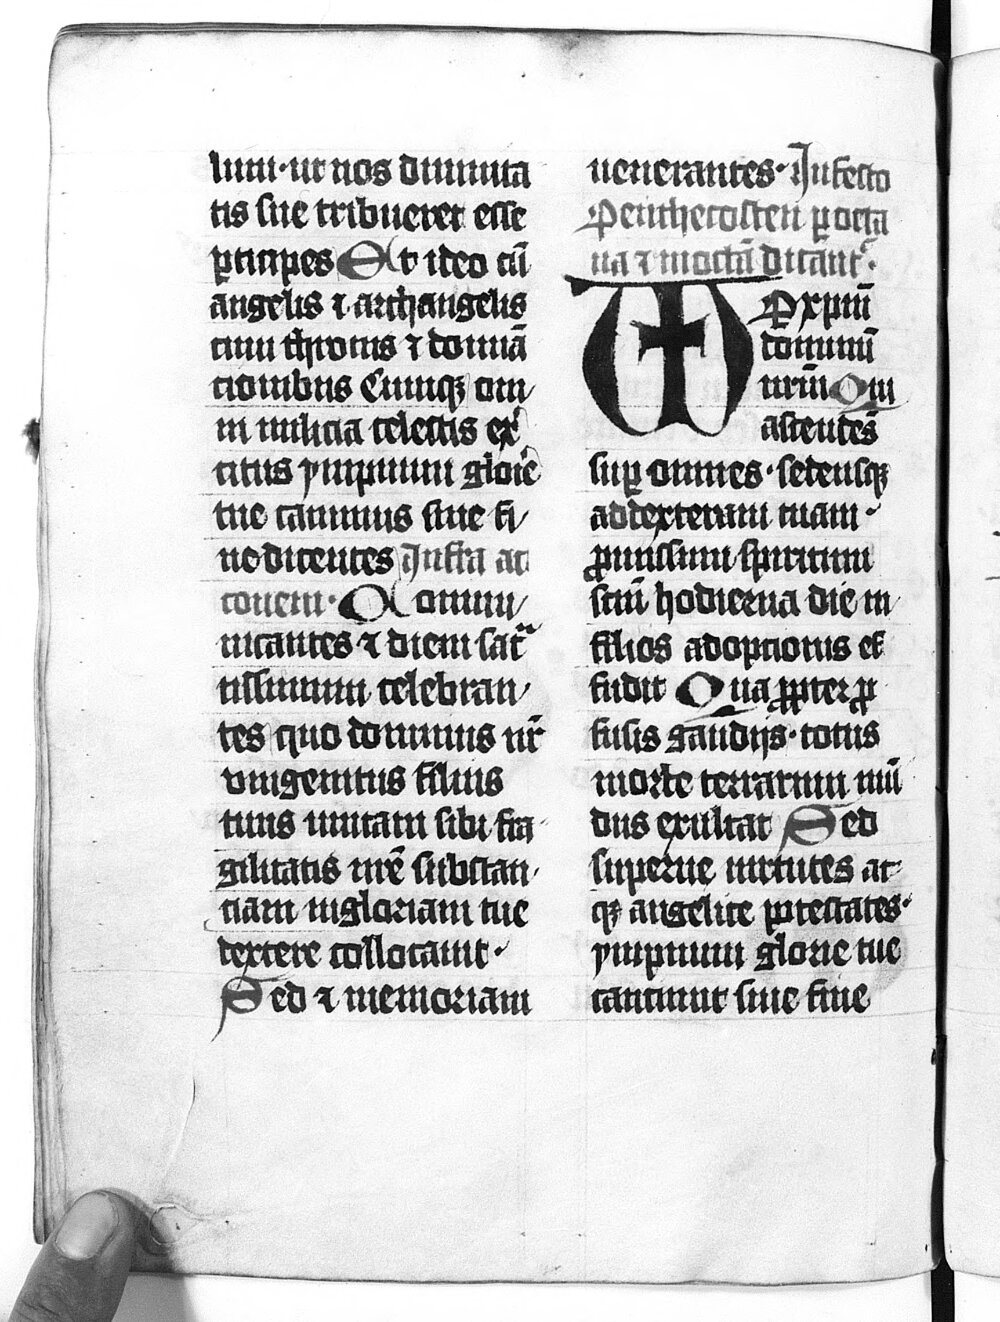 lum · ut nos diuinita
tis sue tribueret esse
pticipes Et ideo cũ
angelis ⁊ archangelis
cum thronis ⁊ domiã
cionibus Cumqꝫ om
ni milicia celestis ex̾
citus ympnum glorie
tue canimus sine fi
ne dicentes Infra ac
cionem · Comuni
nicantes ⁊ diem sac̾
tissimum celebran
tes quo dominus nr̄
vnigenitus filius
tuus unitam sibi fra
gilitatis nr̄e substan
ciam in gloriam tue
dextere collocauit ·
Sed ⁊ memoriam
uenerantes · In festo
Penthecosten ꝑ octa
ua ⁊ in octã dicant᷑ ·
Per xpm̄
dominū
nrm̄ Qui
ascendẽs
suꝑ omnes · sedensqꝫ
ad dexteram tuam ·
ꝓmissum spiritum
scm̄ hodierna die in
filios adopcionis ef
fudit Quapropter ꝓ
fusis gaudijs · totus
in orbe terrarum mũ
dus exultat Sed
superne uirtutes at
qꝫ angelice potestates ·
ympnum glorie tue
cantinut sine fine